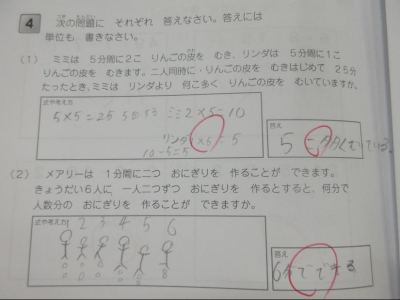 4 次の問題に それぞれ 答えなさい。答えには
単位も 書きなさい。
(1) ミミは 5分間に2こ りんごの皮を むき、リンダは 5分間に1こ
りんごの皮を むきます。二人同時に・りんごの皮を むきはじめて 25分
たったとき、ミミは リンダより 何こ多く りんごの皮を むいていますか。
式や考え方
5×5=25 ミミ 2×5=10
リンダ ×5=5
10-5=5
答え
5こ
(2) メアリーは 1分間に二つ おにぎりを 作ることが できます。
きょうだい6人に 一人二つずつ おにぎりを 作るとすると、何分で
人数分の おにぎりを 作ることが できますか。
式や考え方
1 2 3 4 5 6
答え
6分でできる